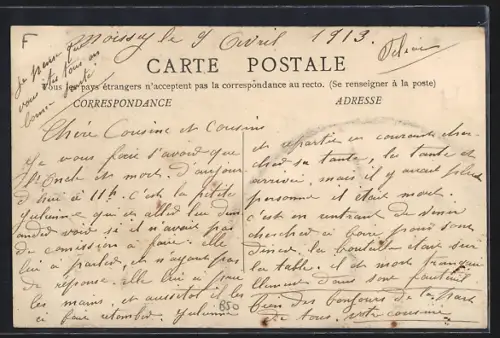 F
Moissey le 9 Avril 1913.
Je pense que
vous êtes tous en
bonne santé
CARTE POSTALE
Tous les pays étrangers n'acceptent pas la correspondance au recto. (Se renseigner à la poste)
CORRESPONDANCE
ADRESSE
Chère Cousine et Cousins
Je vous fais s'avoir que
est mort. d'aujour
d'hui à 11h. C'est la petite
Yulienne qui est allée lui deman
ander voir si il n'avait pas
de comission à faire. elle
lui a parler, et n'ayant pas
de reponse. elle lui a pris
les mains, et aussitot il les
a fait retomber. Yulienne
et repartie en courant cher
cher sa tante, les tante et
arrivée, mais il y avait plus
personne il était mort.
c'est en entrant de diner
chercher à boire pour son
diner. la bouteille était sur
la table, et il et mort tranquil
llement dans son fauteuil.
Bien des bonjours de la part
de tous, votre cousine
850